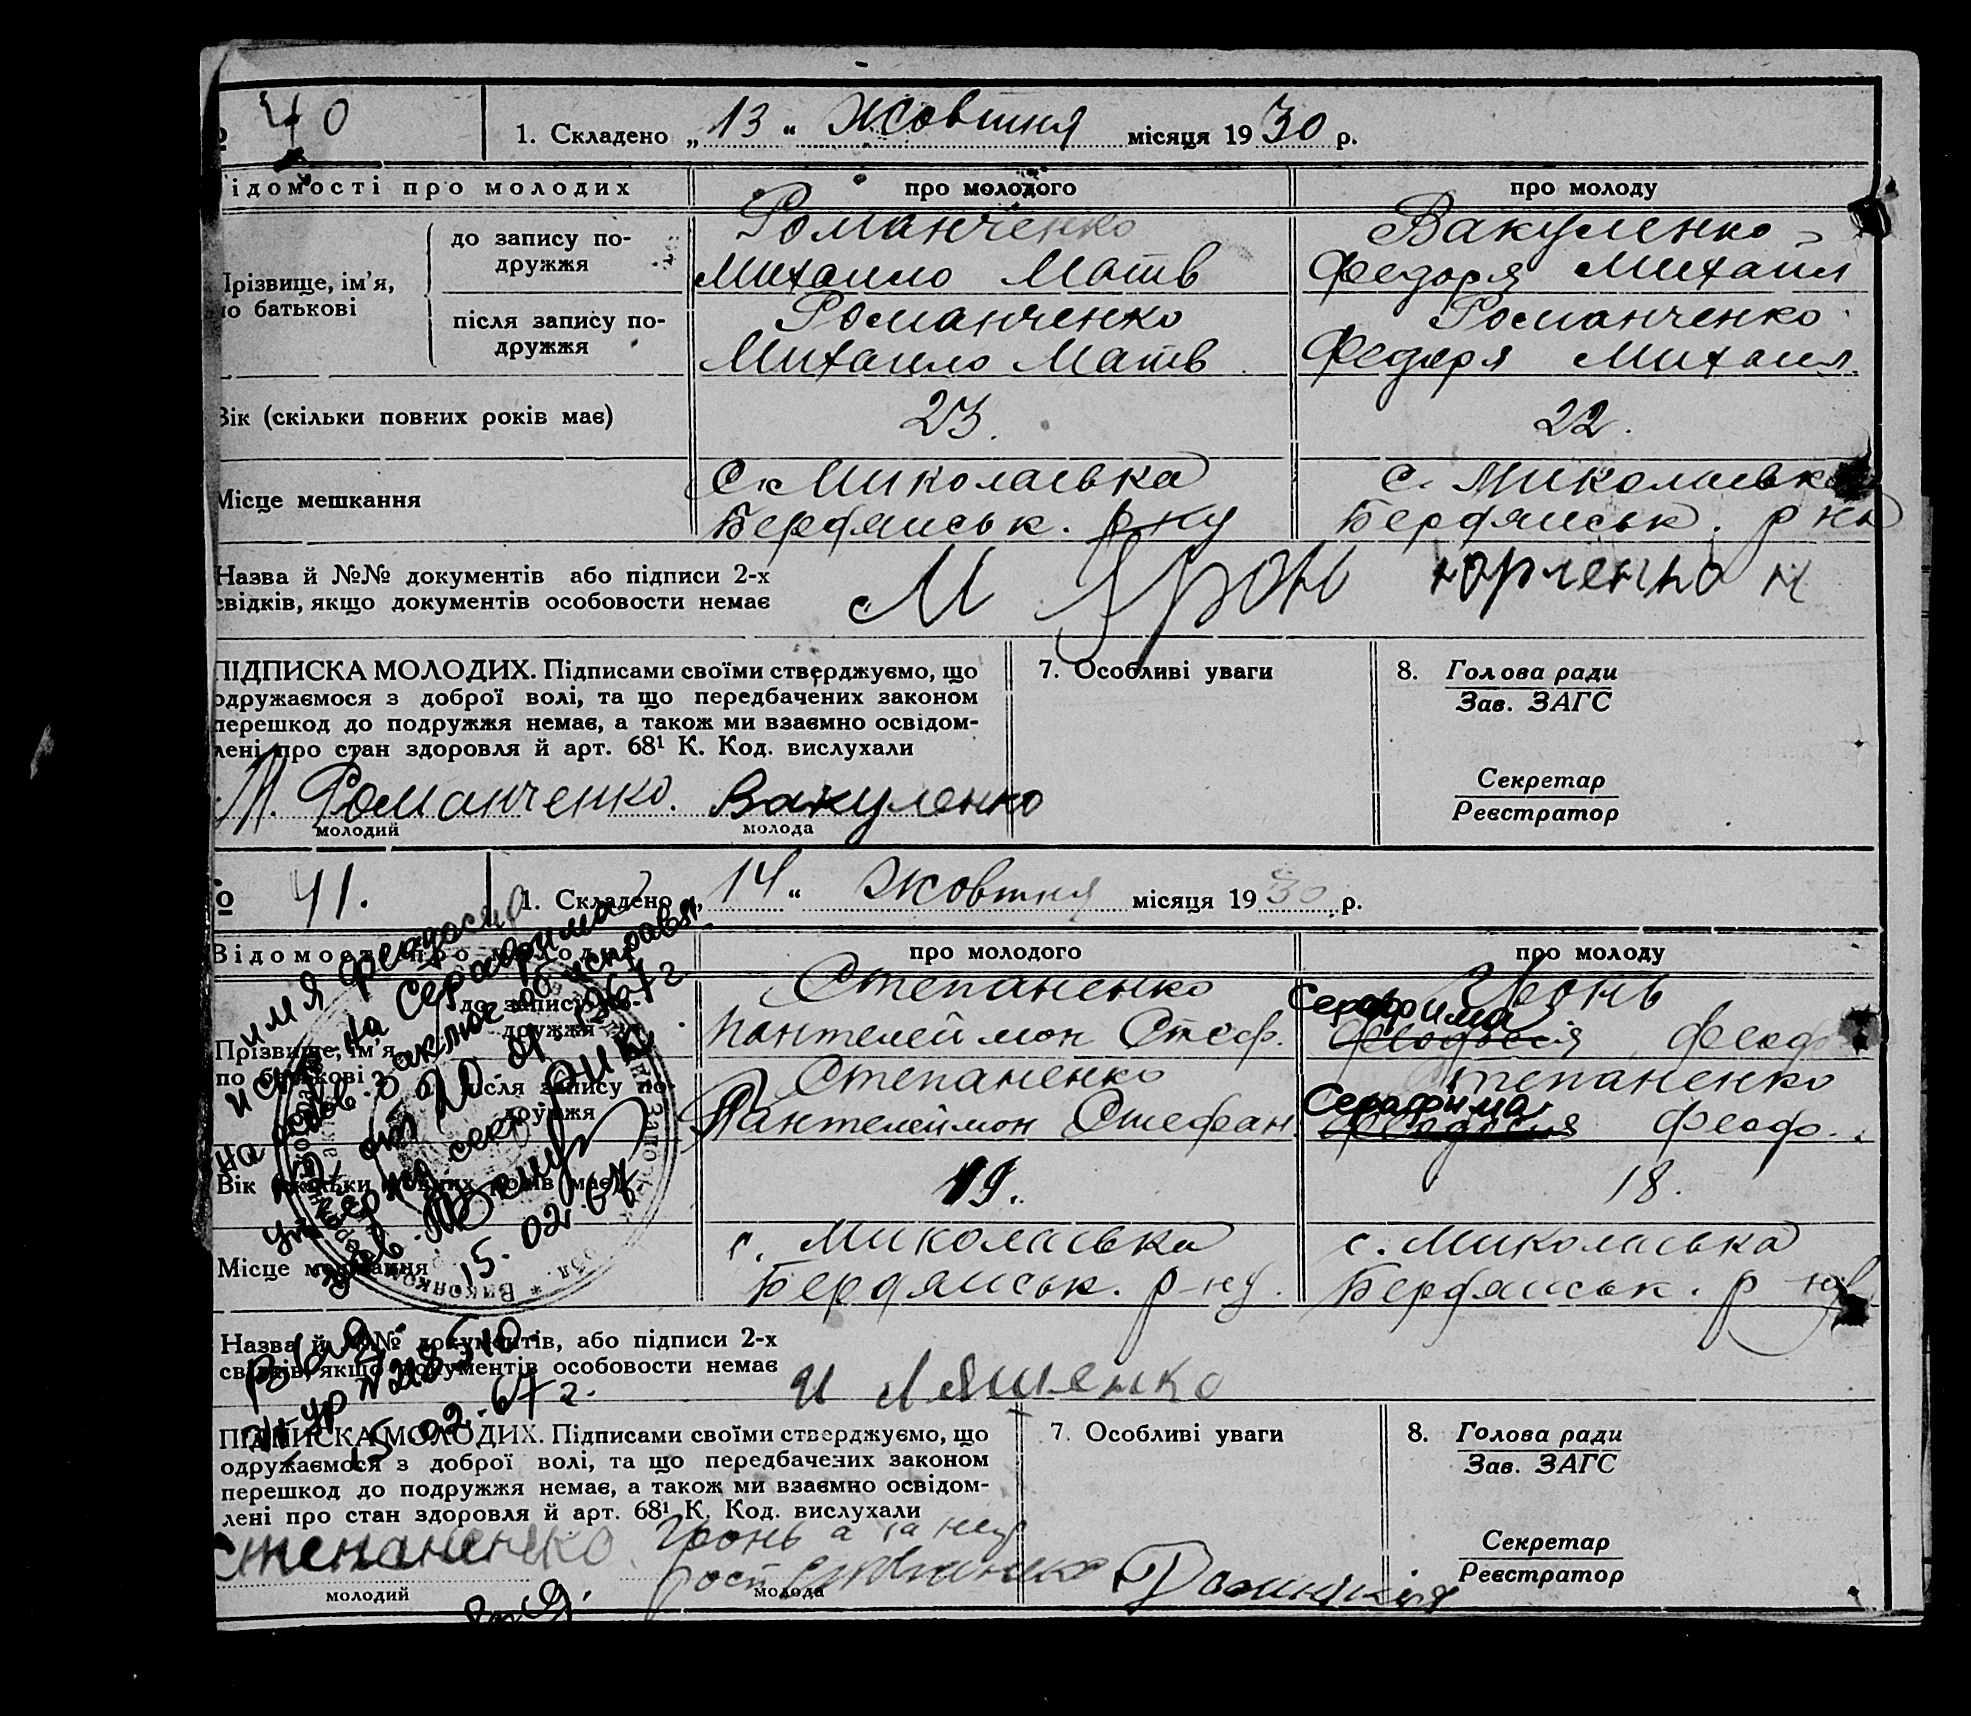 40
1. Складено „13“ Жовтня місяця 1930 р.
ідомості про молодих
про молодого
про молоду
різвище, ім'я,
о батькові
до запису по-
дружжя
Романченко
Михаило Матв
Вакуленко
Федоря Михаил
після запису по-
дружжя
Романченко
Михаило Матв
Романченко
Федоря Михаил.
Вік (скільки повних років має)
23.
22.
Місце мешкання
с. Миколаєвка
Бердянськ. р-ну
с. Миколаєвка
Бердянськ. р-на
Назва й №№ документів або підписи 2-х
свідків, якщо документів особовости немає
М
ПІДПИСКА МОЛОДИХ. Підписами своїми стверджуємо, що
одружаємося з доброї волі, та що передбачених законом
перешкод до подружжя немає, а також ми взаємно освідом-
лені про стан здоровля й арт. 68¹ К. Код. вислухали
М. Романченко. Вакуленко
молодий
молода
7. Особливі уваги
8. Голова ради
Зав. ЗАГС
Секретар
Реєстратор
о 41.
1. Складено „14“ Жовтня місяця 1930 р.
Відомості про молодих
про молодого
про молоду
Прізвище, ім'я,
по батькові
до запису по-
дружжя
Степаненко
Пантелеймон Стеф.
Гронь
Серафима
Феодосія Феоф
після запису по-
дружжя
Степаненко
Пантелеймон Стефан.
Степаненко
Серафима
Феодосия Феоф.
Вік (скільки повних років має)
19.
18.
Місце мешкання
с. Миколаєвка
Бердянськ. р-ну.
с. Миколаєвка
Бердянськ. р-ну
имя Феодосия
испр. на Серафима
на основ. заключ. об исправл.
от 20. 01. 1967 г
зав.
15. 02. 67
Виконком
15 02. 67 г.
Назва й №№ документів, або підписи 2-х
свідків, якщо документів особовости немає
И Ляшенко
ПІДПИСКА МОЛОДИХ. Підписами своїми стверджуємо, що
одружаємося з доброї волі, та що передбачених законом
перешкод до подружжя немає, а також ми взаємно освідом-
лені про стан здоровля й арт. 68¹ К. Код. вислухали
Степаненко
Гронь а за неї
молодий
молода
7. Особливі уваги
8. Голова ради
Зав. ЗАГС
Секретар
Реєстратор